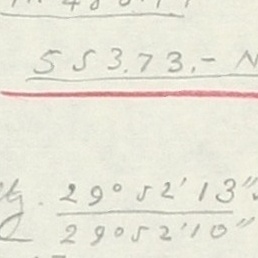 553.73.- N
29° 52' 13"
29° 52' 10"